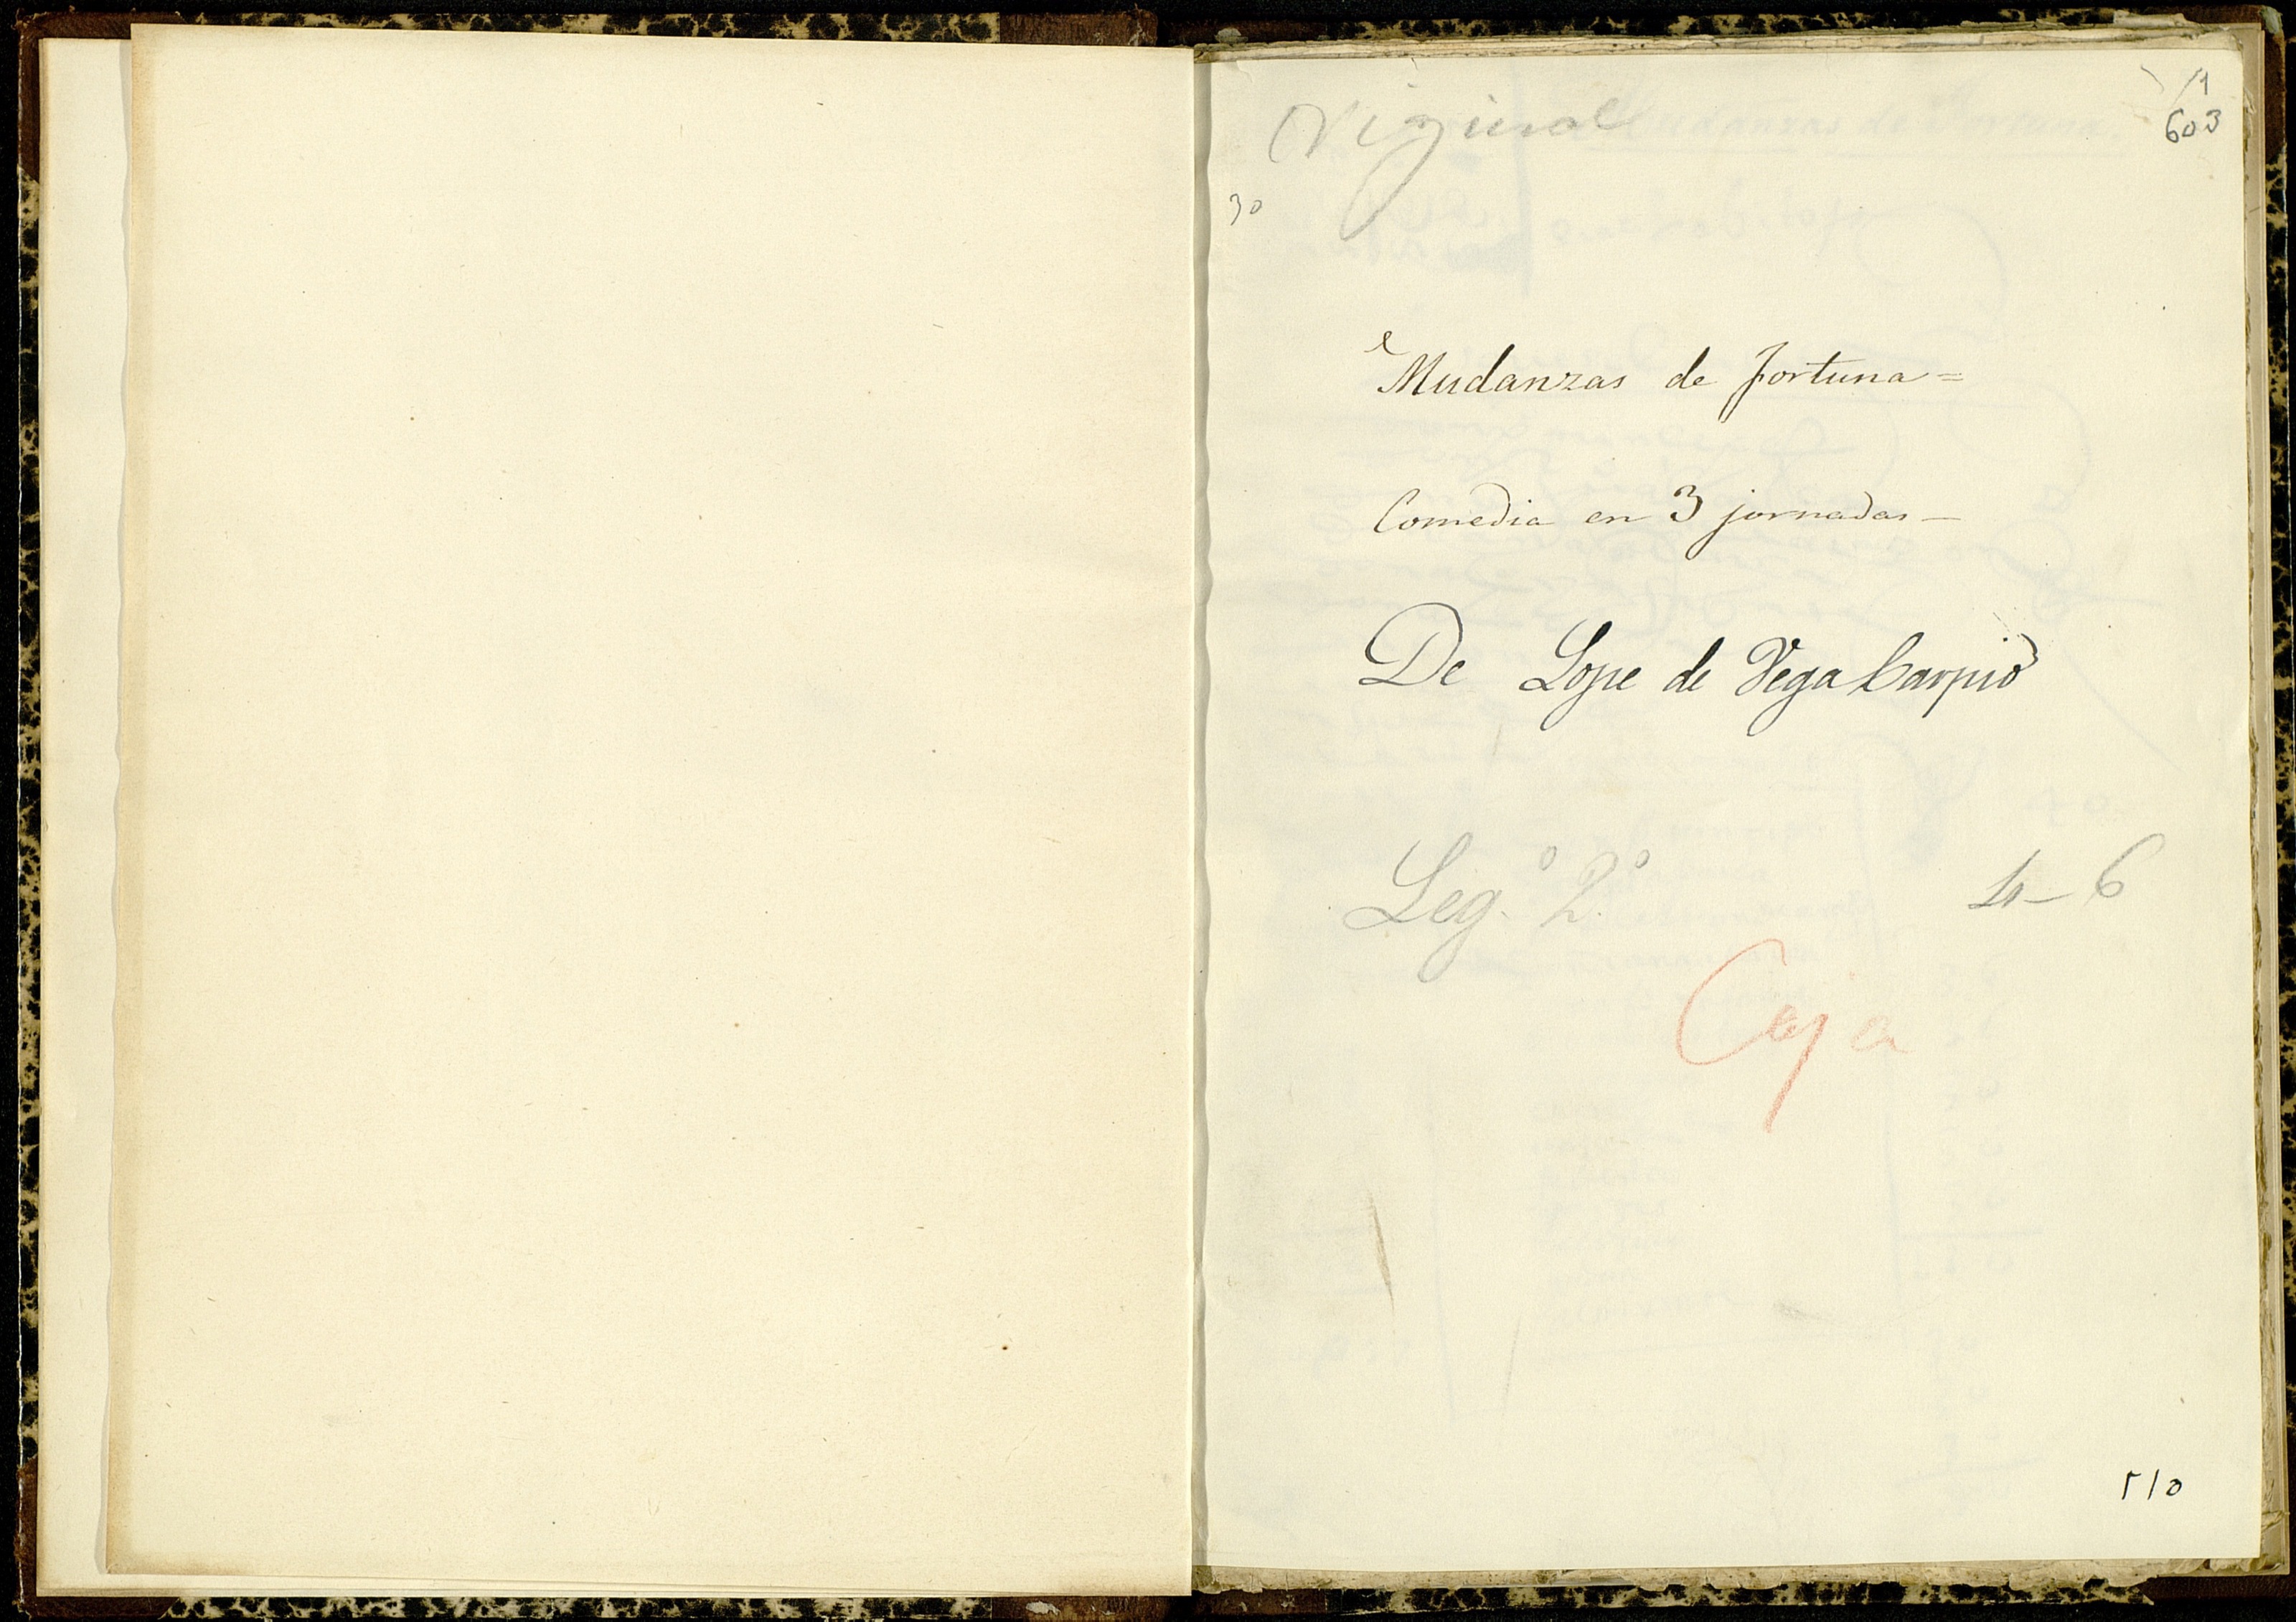 1
603
Original
30
Mudanzas de fortuna=
Comedia en 3 jornadas—
De Lope de Vega Carpio
Leg.º 2.º 4-6
Caja
510